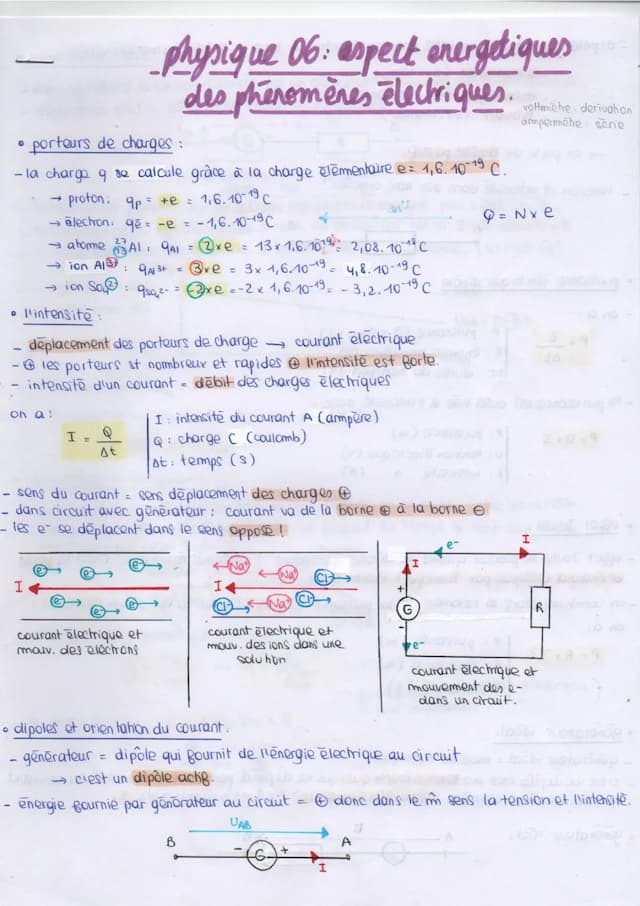 physique 06: aspect energetiques
des phénomènes électriques.
voltmètre: derivation
ampermètre: série
• porteurs de charges :
- la charge q se calcule grâce à la charge élémentaire e = 1,6.10⁻¹⁹ C.
→ proton: qp = +e = 1,6.10⁻¹⁹ C
Q = N x e
→ électron: qē = -e = -1,6.10⁻¹⁹ C
→ ion Al³⁺: qAl3+ = 3xe = 3 x 1,6.10⁻¹⁹ = 4,8.10⁻¹⁹ C
→ ion So₄²⁻: qSO₄²⁻ = -2xe = -2 x 1,6.10⁻¹⁹ = -3,2.10⁻¹⁹ C
• l'intensité :
- déplacement des porteurs de charge → courant électrique
- ⊕ les porteurs st nombreux et rapides ⊕ l'intensité est forte
- intensité d'un courant = débit des charges électriques
on a :
I = Q / Δt
I : intensité du courant A (ampère)
Q : charge C (coulomb)
Δt : temps (s)
- sens du courant = sens déplacement des charges ⊕
- dans circuit avec générateur : courant va de la borne ⊕ à la borne ⊖
- les e⁻ se déplacent dans le sens opposé !
e⁻ e⁻ e⁻
I
e⁻ e⁻ e⁻
courant électrique et
mouv. des eléctrons
Na⁺ Na⁺ Cl⁻
I
Cl⁻ Na⁺ Cl⁻
courant électrique et
mouv. des ions dans une
solution
e⁻ I
I
+
G R
-
e⁻
courant électrique et
mouvement des e-
dans un circuit.
• dipoles et orientation du courant.
- générateur = dipôle qui fournit de l'énergie électrique au circuit
→ c'est un dipôle actif.
- énergie fournie par générateur au circuit = ⊕ donc dans le m̂ sens la tension et l'intensité.
UAB
B - G + A
I